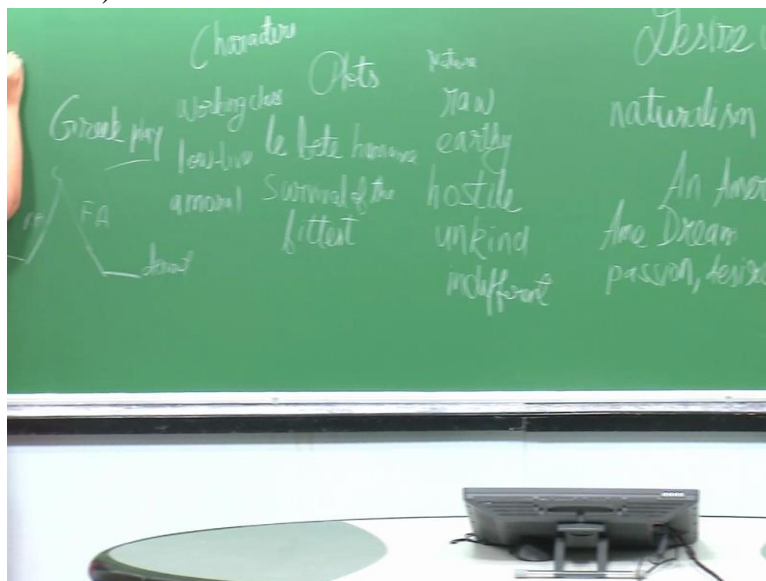 Characters
working class
low-live
amoral
Greek play
FA
Plots
le bete humaine
Survival of the
fittest
nature
raw
earthy
hostile
unkind
indifferent
Desire
naturalism
An Amer
Ame Dream
passion, desire